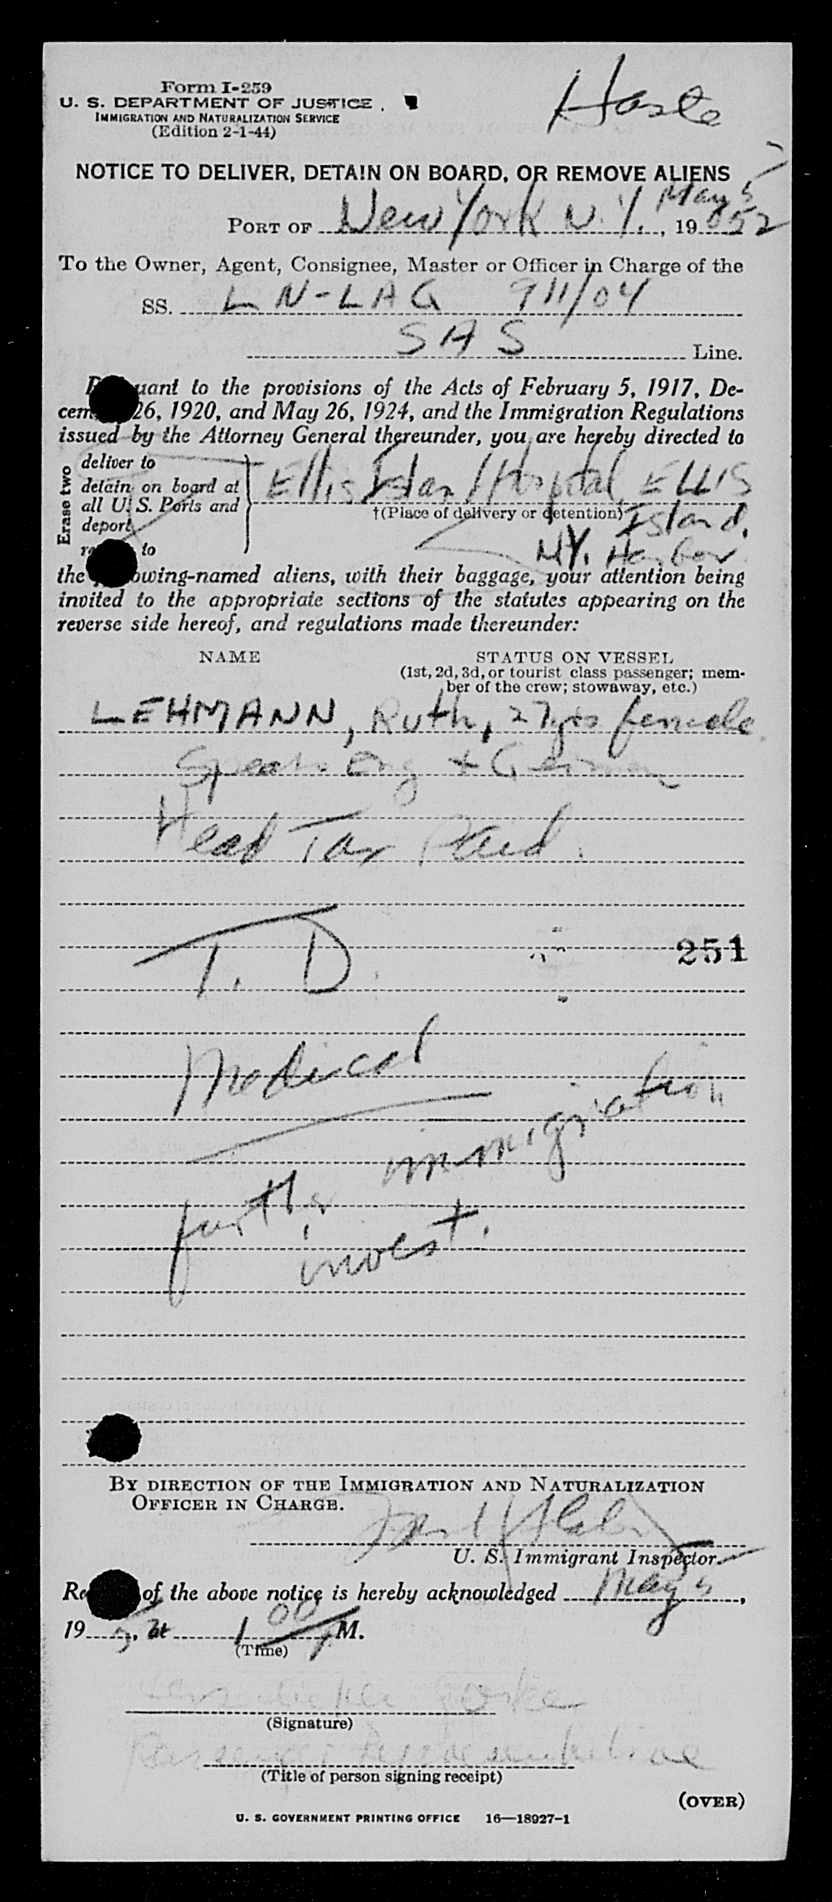 Form I-259
U. S. DEPARTMENT OF JUSTICE
IMMIGRATION AND NATURALIZATION SERVICE
(Edition 2-1-44)
NOTICE TO DELIVER, DETAIN ON BOARD, OR REMOVE ALIENS
May 5
PORT OF New York N.Y., 1952
To the Owner, Agent, Consignee, Master or Officer in Charge of the
SS. LN-LAG 911/04
SAS Line.
uant to the provisions of the Acts of February 5, 1917, De-
cem 26, 1920, and May 26, 1924, and the Immigration Regulations
issued by the Attorney General thereunder, you are hereby directed to
Erase two
deliver to
detain on board at
all U. S. Ports and
deport
to
Ellis Island Hospital, ELLIS
†(Place of delivery or detention) Island,
NY. Harbor
the owing-named aliens, with their baggage, your attention being
invited to the appropriate sections of the statutes appearing on the
reverse side hereof, and regulations made thereunder:
NAME STATUS ON VESSEL
(1st, 2d, 3d, or tourist class passenger; mem-
ber of the crew; stowaway, etc.)
LEHMANN, Ruth, 27 yrs female
Speaks Eng + German
Head Tax Paid.
T. D.
251
Medical
further immigration
invest.
BY DIRECTION OF THE IMMIGRATION AND NATURALIZATION
OFFICER IN CHARGE.
U. S. Immigrant Inspector.
Re of the above notice is hereby acknowledged May 5,
19 , at 1 00 M.
(Time)
(Signature)
Passenger Representative
(Title of person signing receipt)
(OVER)
U. S. GOVERNMENT PRINTING OFFICE 16—18927-1